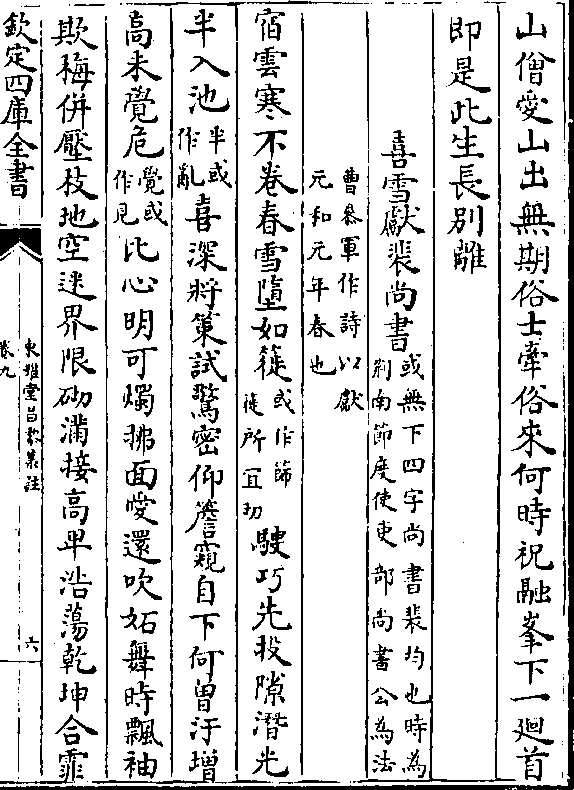 山僧愛山出無期俗士牽俗來何時祝融峯下一迴首
即是此生長別離
喜雪獻裴尚書或無下四字尚書裴均也時為荆南節度使吏部尚書公為法
曹叅軍作詩以獻元和元年春也
宿雲寒不卷春雪墮如簁或作篩簁所宜切騁巧先投隙潛光
半入池半或作亂喜深將策試驚密仰簷窺自下何曾汙增
高未覺危覺或作見比心明可燭拂面愛還吹妬舞時飄袖
欺梅併壓枝地空迷界限砌滿接高卑浩蕩乾坤合霏
欽定四庫全書
東雅堂昌黎集註
卷九
六